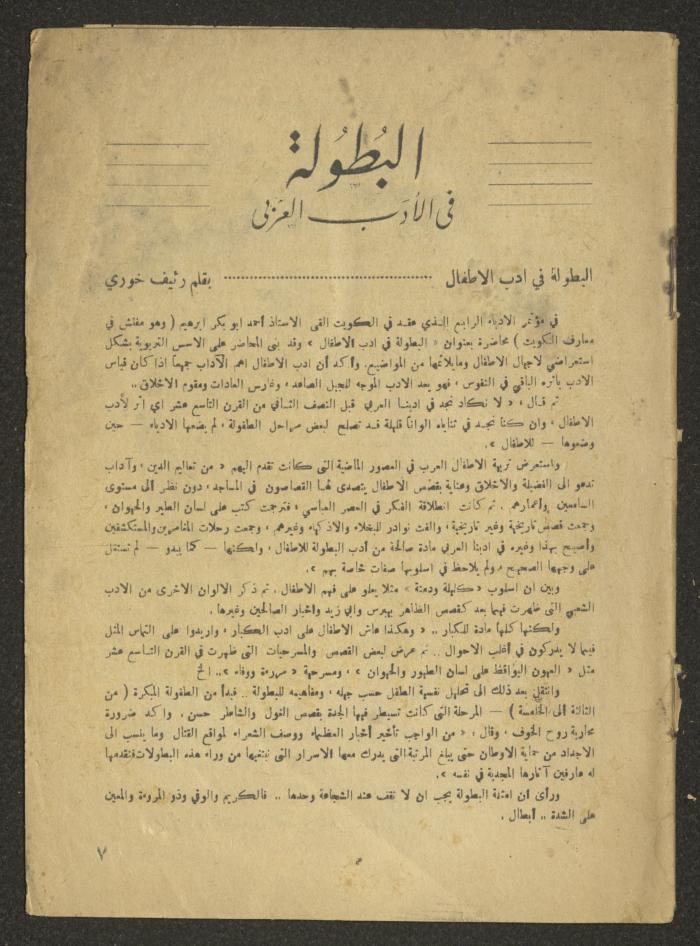 البُطُولة
في الأدَب العَرَبي
البطولة في ادب الاطفال ........................ بقلم رئيف خوري
في مؤتمر الادباء الرابع الذي عقد في الكويت القى الاستاذ أحمد ابو بكر ابرهيم ( وهو مفتش في
معارف الكويت ) محاضرة بعنوان « البطولة في ادب الاطفال » وقد بنى المحاضر على الاسس التربوية بشكل
استعراضي لاجيال الاطفال ومايلائمها من المواضيع. وأكد أن ادب الاطفال اهم الآداب جميعاً اذا كان قياس
الادب بأثره الباقي في النفوس ، فهو يعد الادب الموجه للجيل الصاعد ، وغارس العادات ومقوم الاخلاق ..
ثم قال : « لا نكاد نجد في ادبنا العربي قبل النصف الثاني من القرن التاسع عشر اي اثر لأدب
الاطفال ، وان كنا نجد في ثناياه الواناً قليلة قد تصلح لبعض مراحل الطفولة ، لم يضعها الادباء — حين
وضعوها — للاطفال ».
واستعرض تربية الاطفال العرب في العصور الماضية التي كانت تقدم اليهم « من تعاليم الدين ، وآداب
تدعو الى الفضيلة والاخلاق وعناية بقصص الاطفال يتصدى لها القصاصون في المساجد ، دون نظر الى مستوى
السامعين وأعمارهم . ثم كانت انطلاقة الفكر في العصر العباسي ، فترجمت كتب على لسان الطير والحيوان ،
وجمعت قصص تاريخية وغير تاريخية ، والفت نوادر للبخلاء والاذكياء وغيرهم ، وجمعت رحلات المغامرين والمستكشفين
وأصبح بهذا وغيره في ادبنا العربي مادة صالحة من أدب البطولة للاطفال ، ولكنها — كما يبدو — لم تستغل
على وجهها الصحيح ، ولم يلاحظ في اسلوبها صفات خاصة بهم ».
وبين ان اسلوب « كليلة ودمنة » مثلا يعلو على فهم الاطفال . ثم ذكر الالوان الاخرى من الادب
الشعبي التي ظهرت فيما بعد كقصص الظاهر بيبرس وابي زيد واخبار الصالحين وغيرها .
ولكنها كلها مادة للكبار .. « وهكذا عاش الاطفال على ادب الكبار ، واريدوا على التماس المثل
فيما لا يدركون في أغلب الاحوال .. ثم عرض لبعض القصص والمسرحيات التي ظهرت في القرن التاسع عشر
مثل « العيون اليواقظ على لسان الطيور والحيوان » ، ومسرحية « مروءة ووفاء ».. الخ
وانتقل بعد ذلك الى تحليل نفسية الطفل حسب جيله ، ومفاهيمه للبطولة .. فبدأ من الطفولة المبكرة ( من
الثالثة إلى الخامسة ) — المرحلة التي كانت تسيطر فيها الجدة بقصص الغول والشاطر حسن . واكد ضرورة
محاربة روح الخوف ، وقال : « من الواجب تأخير أخبار العظماء ووصف الشعراء لمواقع القتال وما ينسب الى
الاجداد من حماية الاوطان حتى يبلغ المرتبة التي يدرك معها الاسرار التي نبتغيها من وراء هذه البطولات فنقدمها
له عارفين آثارها المجدية في نفسه ».
ورأى ان امثلة البطولة يجب ان لا تقف عند الشجاعة وحدها .. فالكريم والوفي وذو المروءة والمعين
على الشدة .. أبطال .
٧